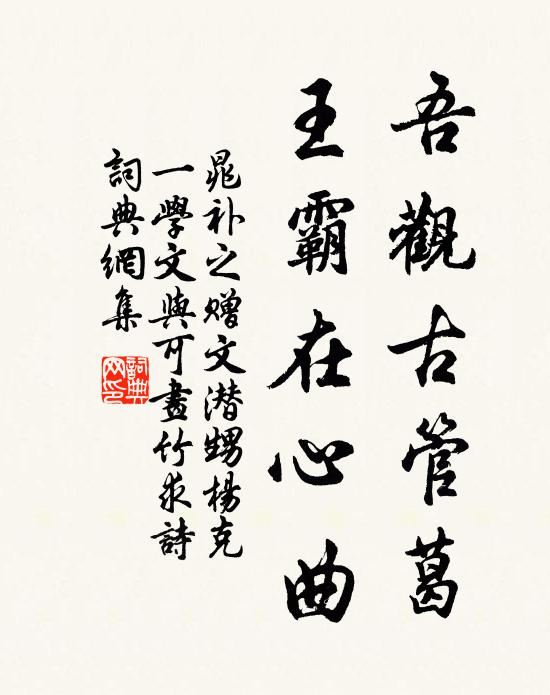 吾觀古管葛
王霸在心曲
晁补之贈文潜甥楊克
一學文與可畫竹求詩
詞典網集
詞典
网印